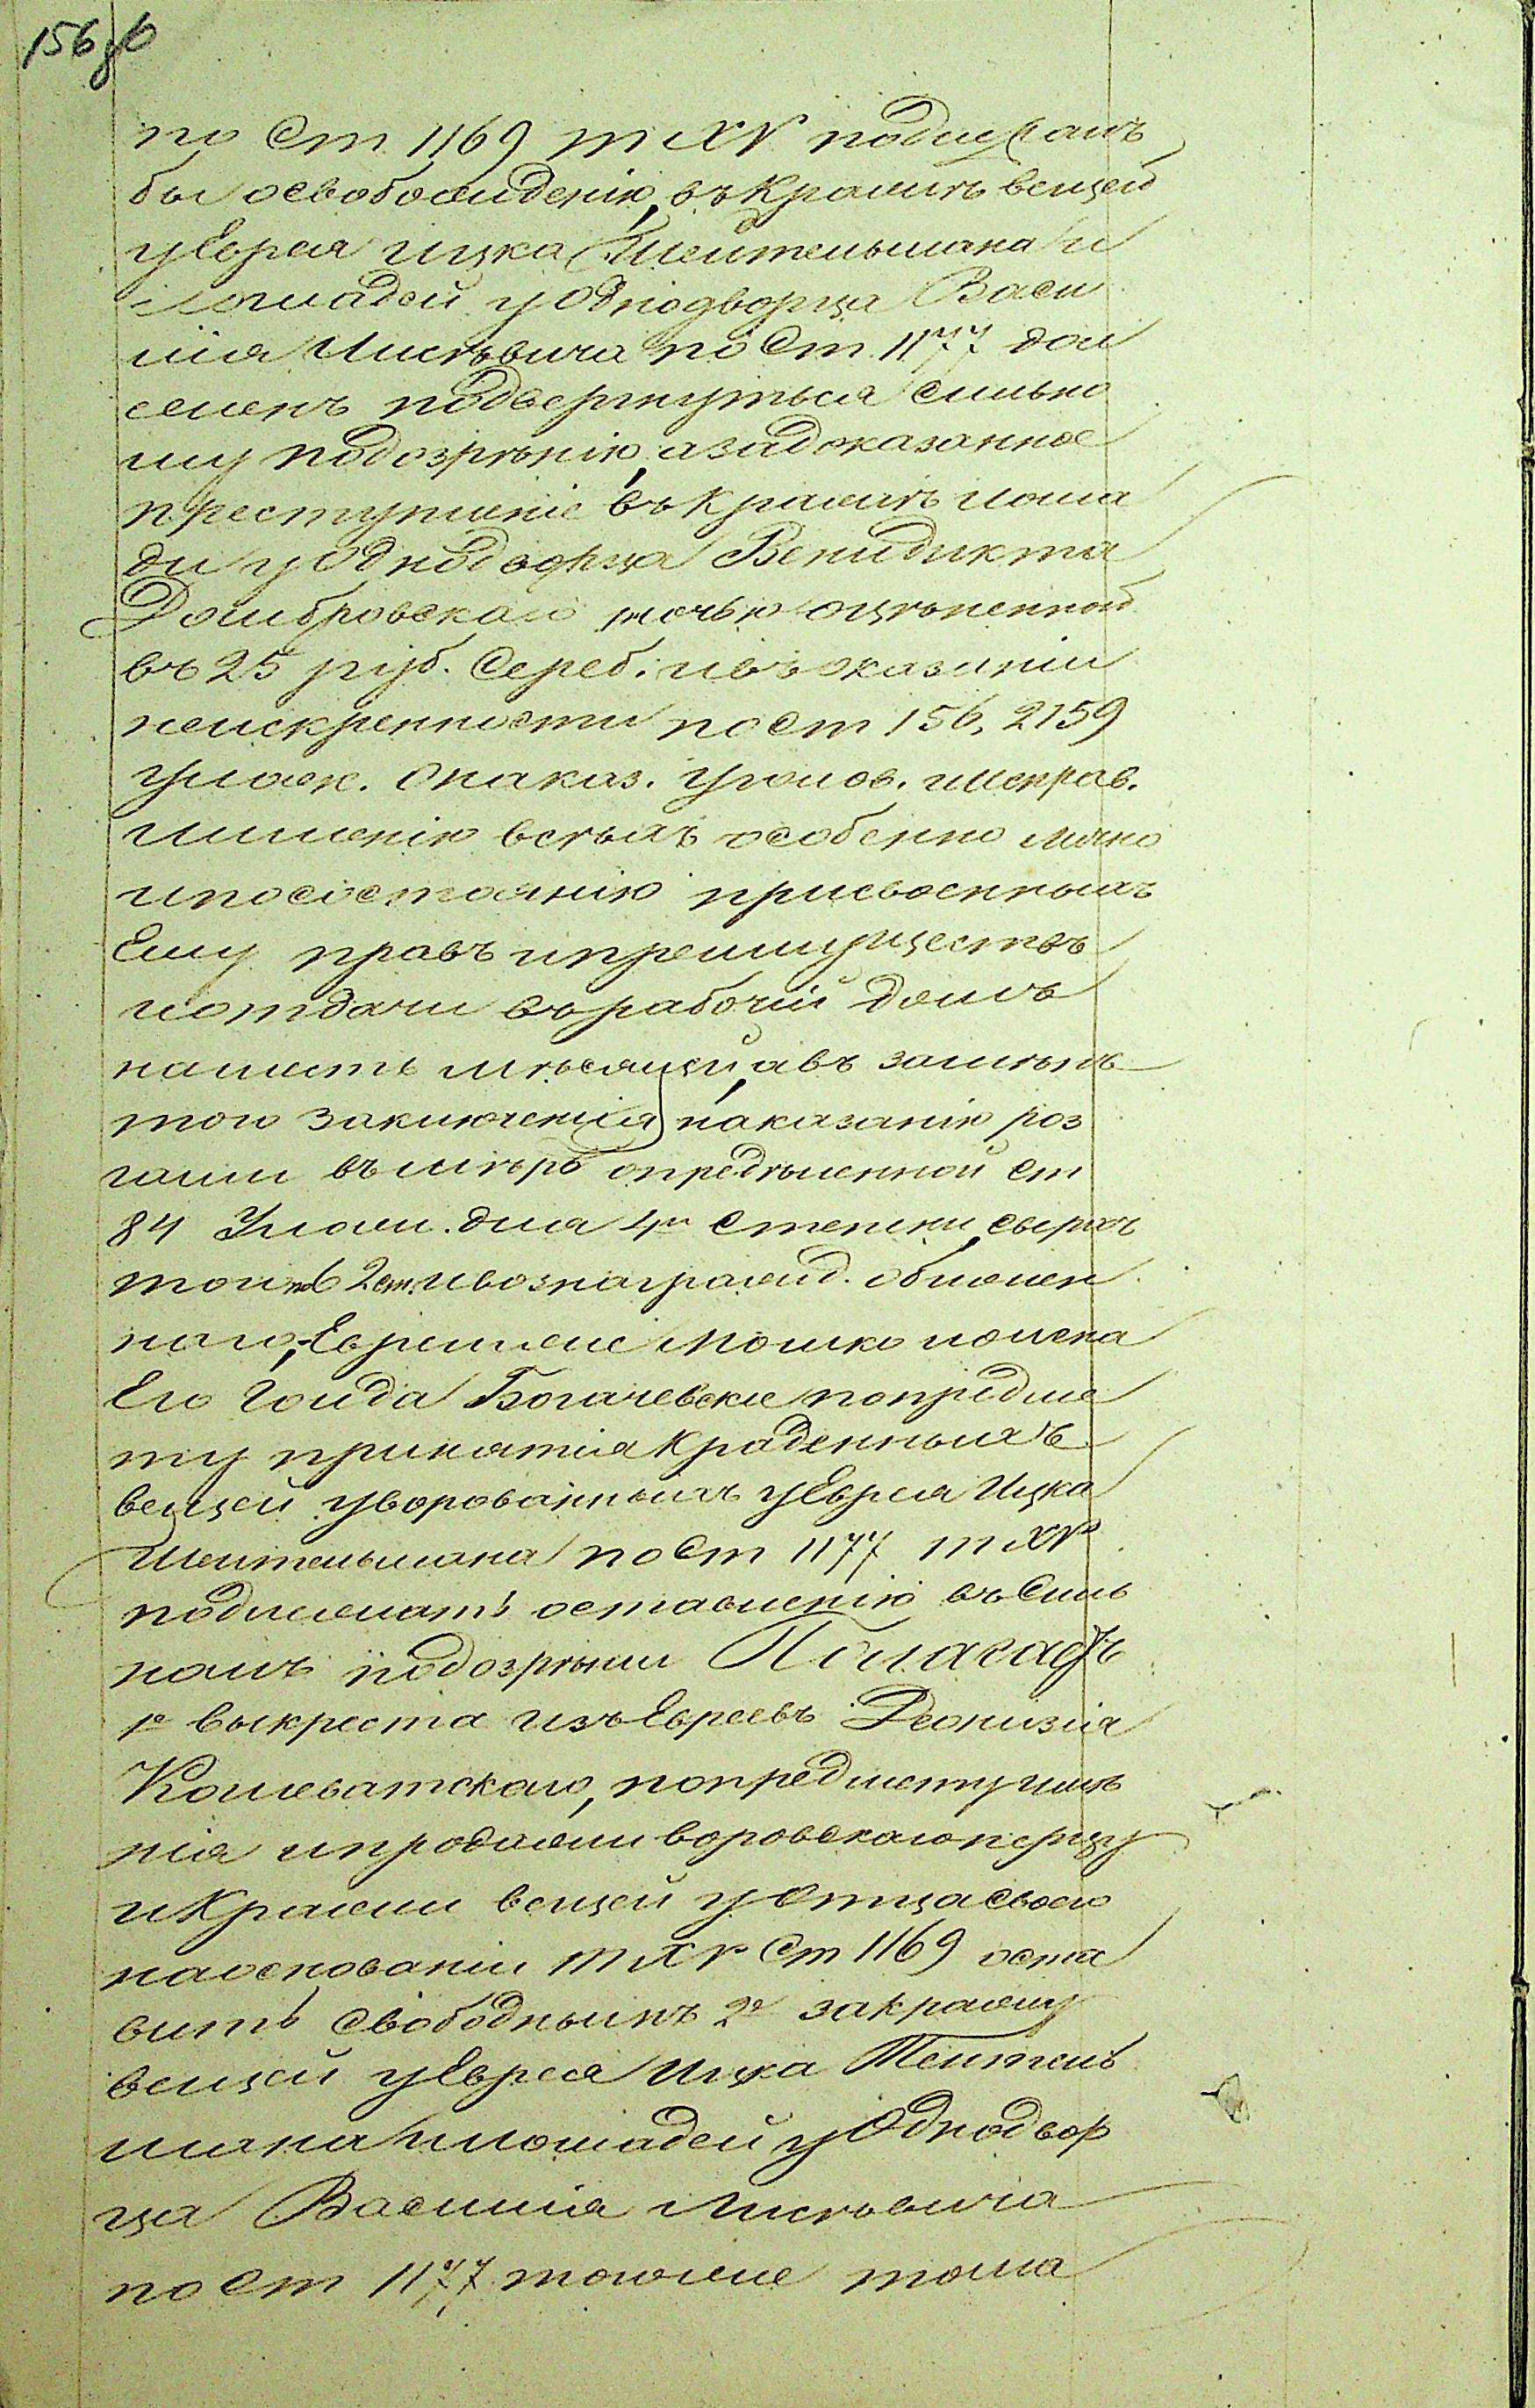 156 об
по Ст. 1169 т XV подлежалъ
бы освобожденію, въ кражѣ вещей
у Еврея Ицка Шейтельмана и
лошадей у Однодворца Васи
лія Лисѣвича по Ст. 1177 дол
женъ подвергнуться сильно
му подозрѣнію, а за доказанное
преступленіе въ кражѣ лоша
ди у Однодворца Венидикта
Домбровскаго ночью оцѣненной
въ 25 руб. Сереб. и въ оказаніи
неискренности по ст 156, 2159
улож. о наказ. уголов. и Исправ.
лишенію всѣхъ особенно лично
и по состоянію присвоенныхъ
Ему правъ и преимуществъ
и отдачи въ рабочій домъ
на шесть мѣсяцей, а въ замѣнъ
того заключенія наказанію роз
гами въ мѣрѣ опредѣленной ст
84 Улож. для 4й Степени, сверхъ
того 2 ст. и вознагражд. обижен
наго, Евреи же Мошко и жена
Его Гоида Богачевскіе по предме
ту принятія краденныхъ
вещей уворованныхъ у Еврея Ицка
Шейтельмана по Ст 1177 т XV
подлежатъ оставленію въ Силь
номъ подозрѣніи Полагаетъ
1е выкреста изъ Евреевъ Деонизія
Кошеватского, по предмету имѣ
нія и продажи воровскаго перцу
и Кражи вещей у Отца своего
на основаніи т XV Ст 1169 оста
вить свободнымъ 2е за кражу
вещей у Еврея Ицка Тейтель
мана и лошадей у Однодвор
ца Василія Лисѣвича
по Ст 1177 тогоже тома